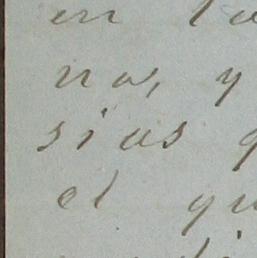 en la
na, y
sias q
el qu